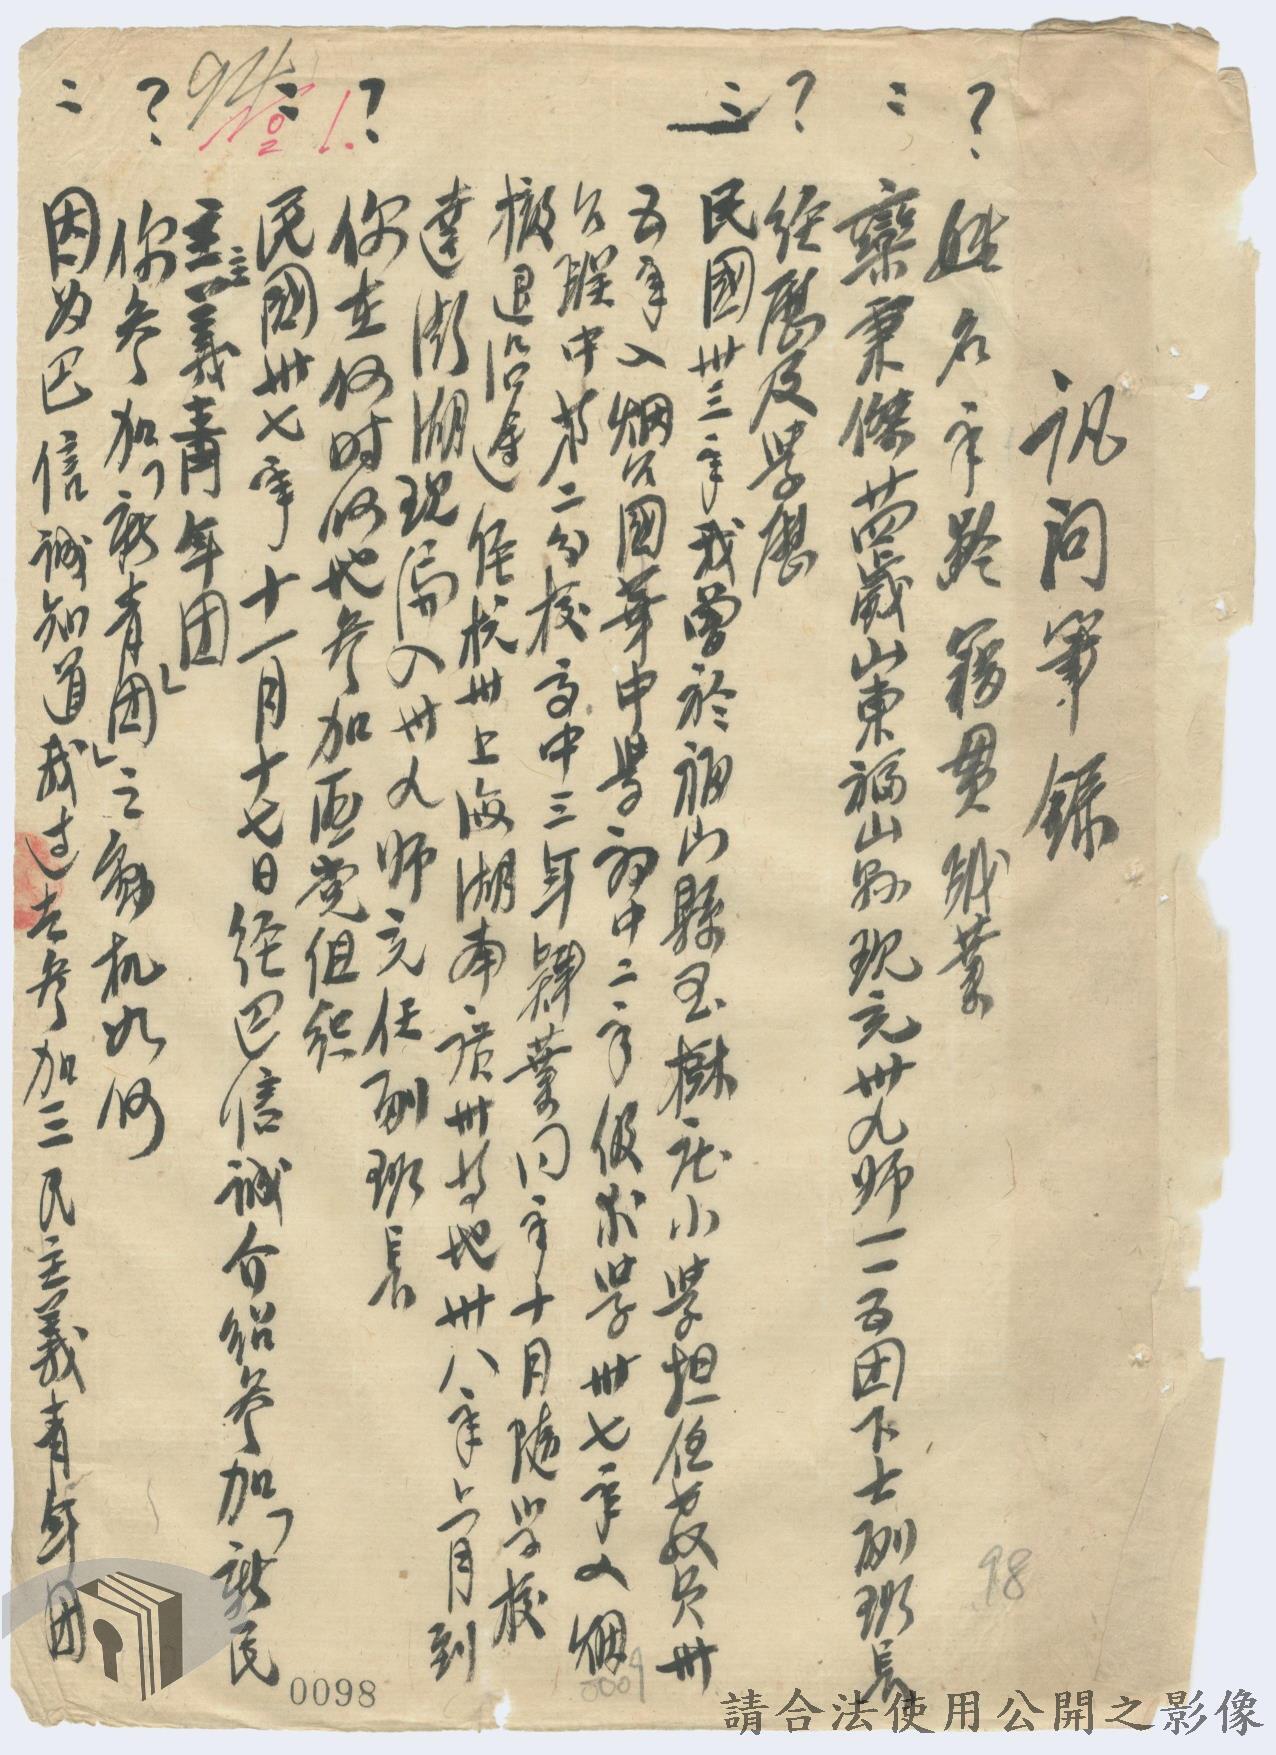 訊問筆錄
? 姓名年齡籍貫職業
: 欒秉傑 廿四歲山東福山縣現充卅九師一一五团下士副班長
? 经歷及學歷
: 民國卅三年我曾於福山縣玉樹庄小學担任教員卅
五年入烟台國華中學初中二年级求學卅七年入烟
台联中第二分校高中三年肄業同年十月随学校
撤退沿途经杭州上海湖南广州等地卅八年六月到
達澎湖現编入卅九师充任副班長
? 你在何时何地参加匪党组织
: 民國卅七年十一月十七日经巴信誠介紹参加「新民
主主義青年团」
? 你参加「新青团」之動机如何
: 因为巴信誠知道我过去参加三民主義青年团
98
0098
0009
請合法使用公開之影像